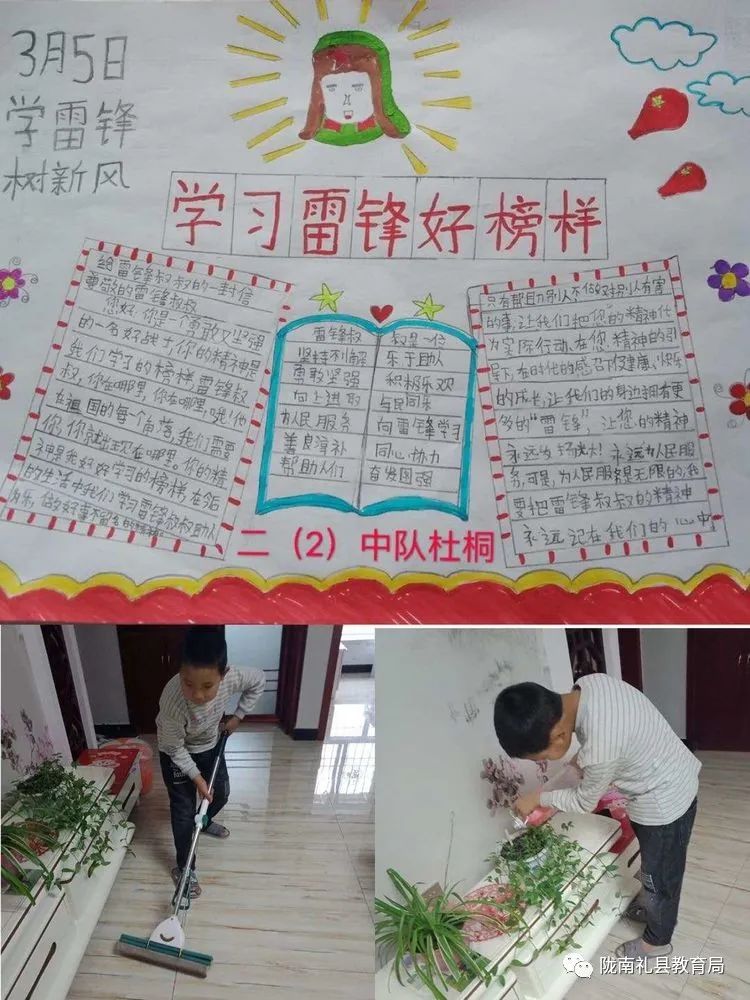 3月5日
学雷锋
树新风
学习雷锋好榜样
给雷锋叔叔的一封信
尊敬的雷锋叔叔
您好,你是一个勇敢又坚强
的一名好战士,你的精神是
我们学习的榜样,雷锋叔
叔,你在哪里,你在哪里,哦!你
在祖国的每个角落,我们需要
你,你就出现在哪里。你的精
神是我好好学习的榜样,在今后
的生活中我们学习雷锋叔叔助人
为乐,做好事不留名的精神
雷锋叔
坚持不懈
勇敢坚强
向上进取
为人民服务
善良淳朴
帮助人们
叔是一位
乐于助人
积极乐观
与民同乐
向雷锋学习
同心协力
奋发图强
只有帮助别人不做对别人有害
的事,让我们把您的精神代
为实际行动、在您精神的引
导下,在时代的感召下健康、快乐
的成长,让我们的身边拥有更
多的“雷锋”,让您的精神
永远发扬光大!永远为人民服
务,可是,为人民服务是无限的,我
要把雷锋叔叔的精神
永远记在我们的心中
二(2)中队杜桐
陇南礼县教育局